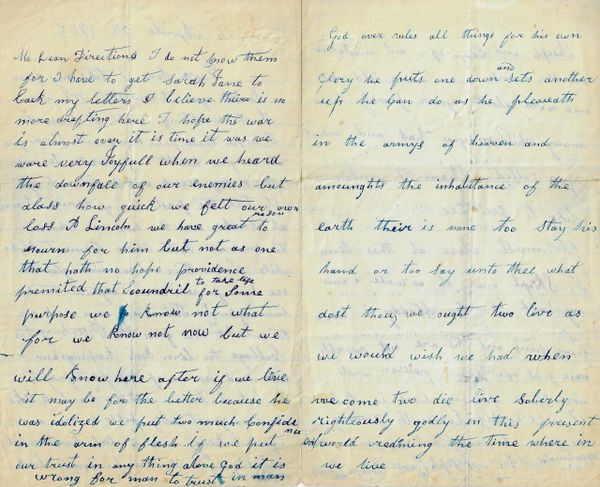 Mc Lean Directions I do not know them
for I have to get Sarah Jane to
back my letters I believe their is no
more drafting here I hope the war
is almost over it is time it was we
ware very Joyfull when we heard
the downfall of our enemies but
alass how quick we felt our own
loss A Lincoln we have great reason to
mourn for him but not as one
that hath no hope providence
premited that Scoundril to take life for Some
purpose we know not what
for we know not now but we
will know here after if we live
it may be for the better because he
was idolized we put two much Confidence
in the arm of flesh if we put
our trust in any thing above God it is
wrong for man to trust in man
God over rules all things for his own
Glory he puts one down and sets another
up he Can do as he pleaseath
in the armys of heaven and
amounghts the inhabitance of the
earth their is none too stay his
hand or too say unto thee what
dost thou we ought two live as
we would wish we had when
we come two die live soberly
righteously godly in this present
world redming the time where in
we live